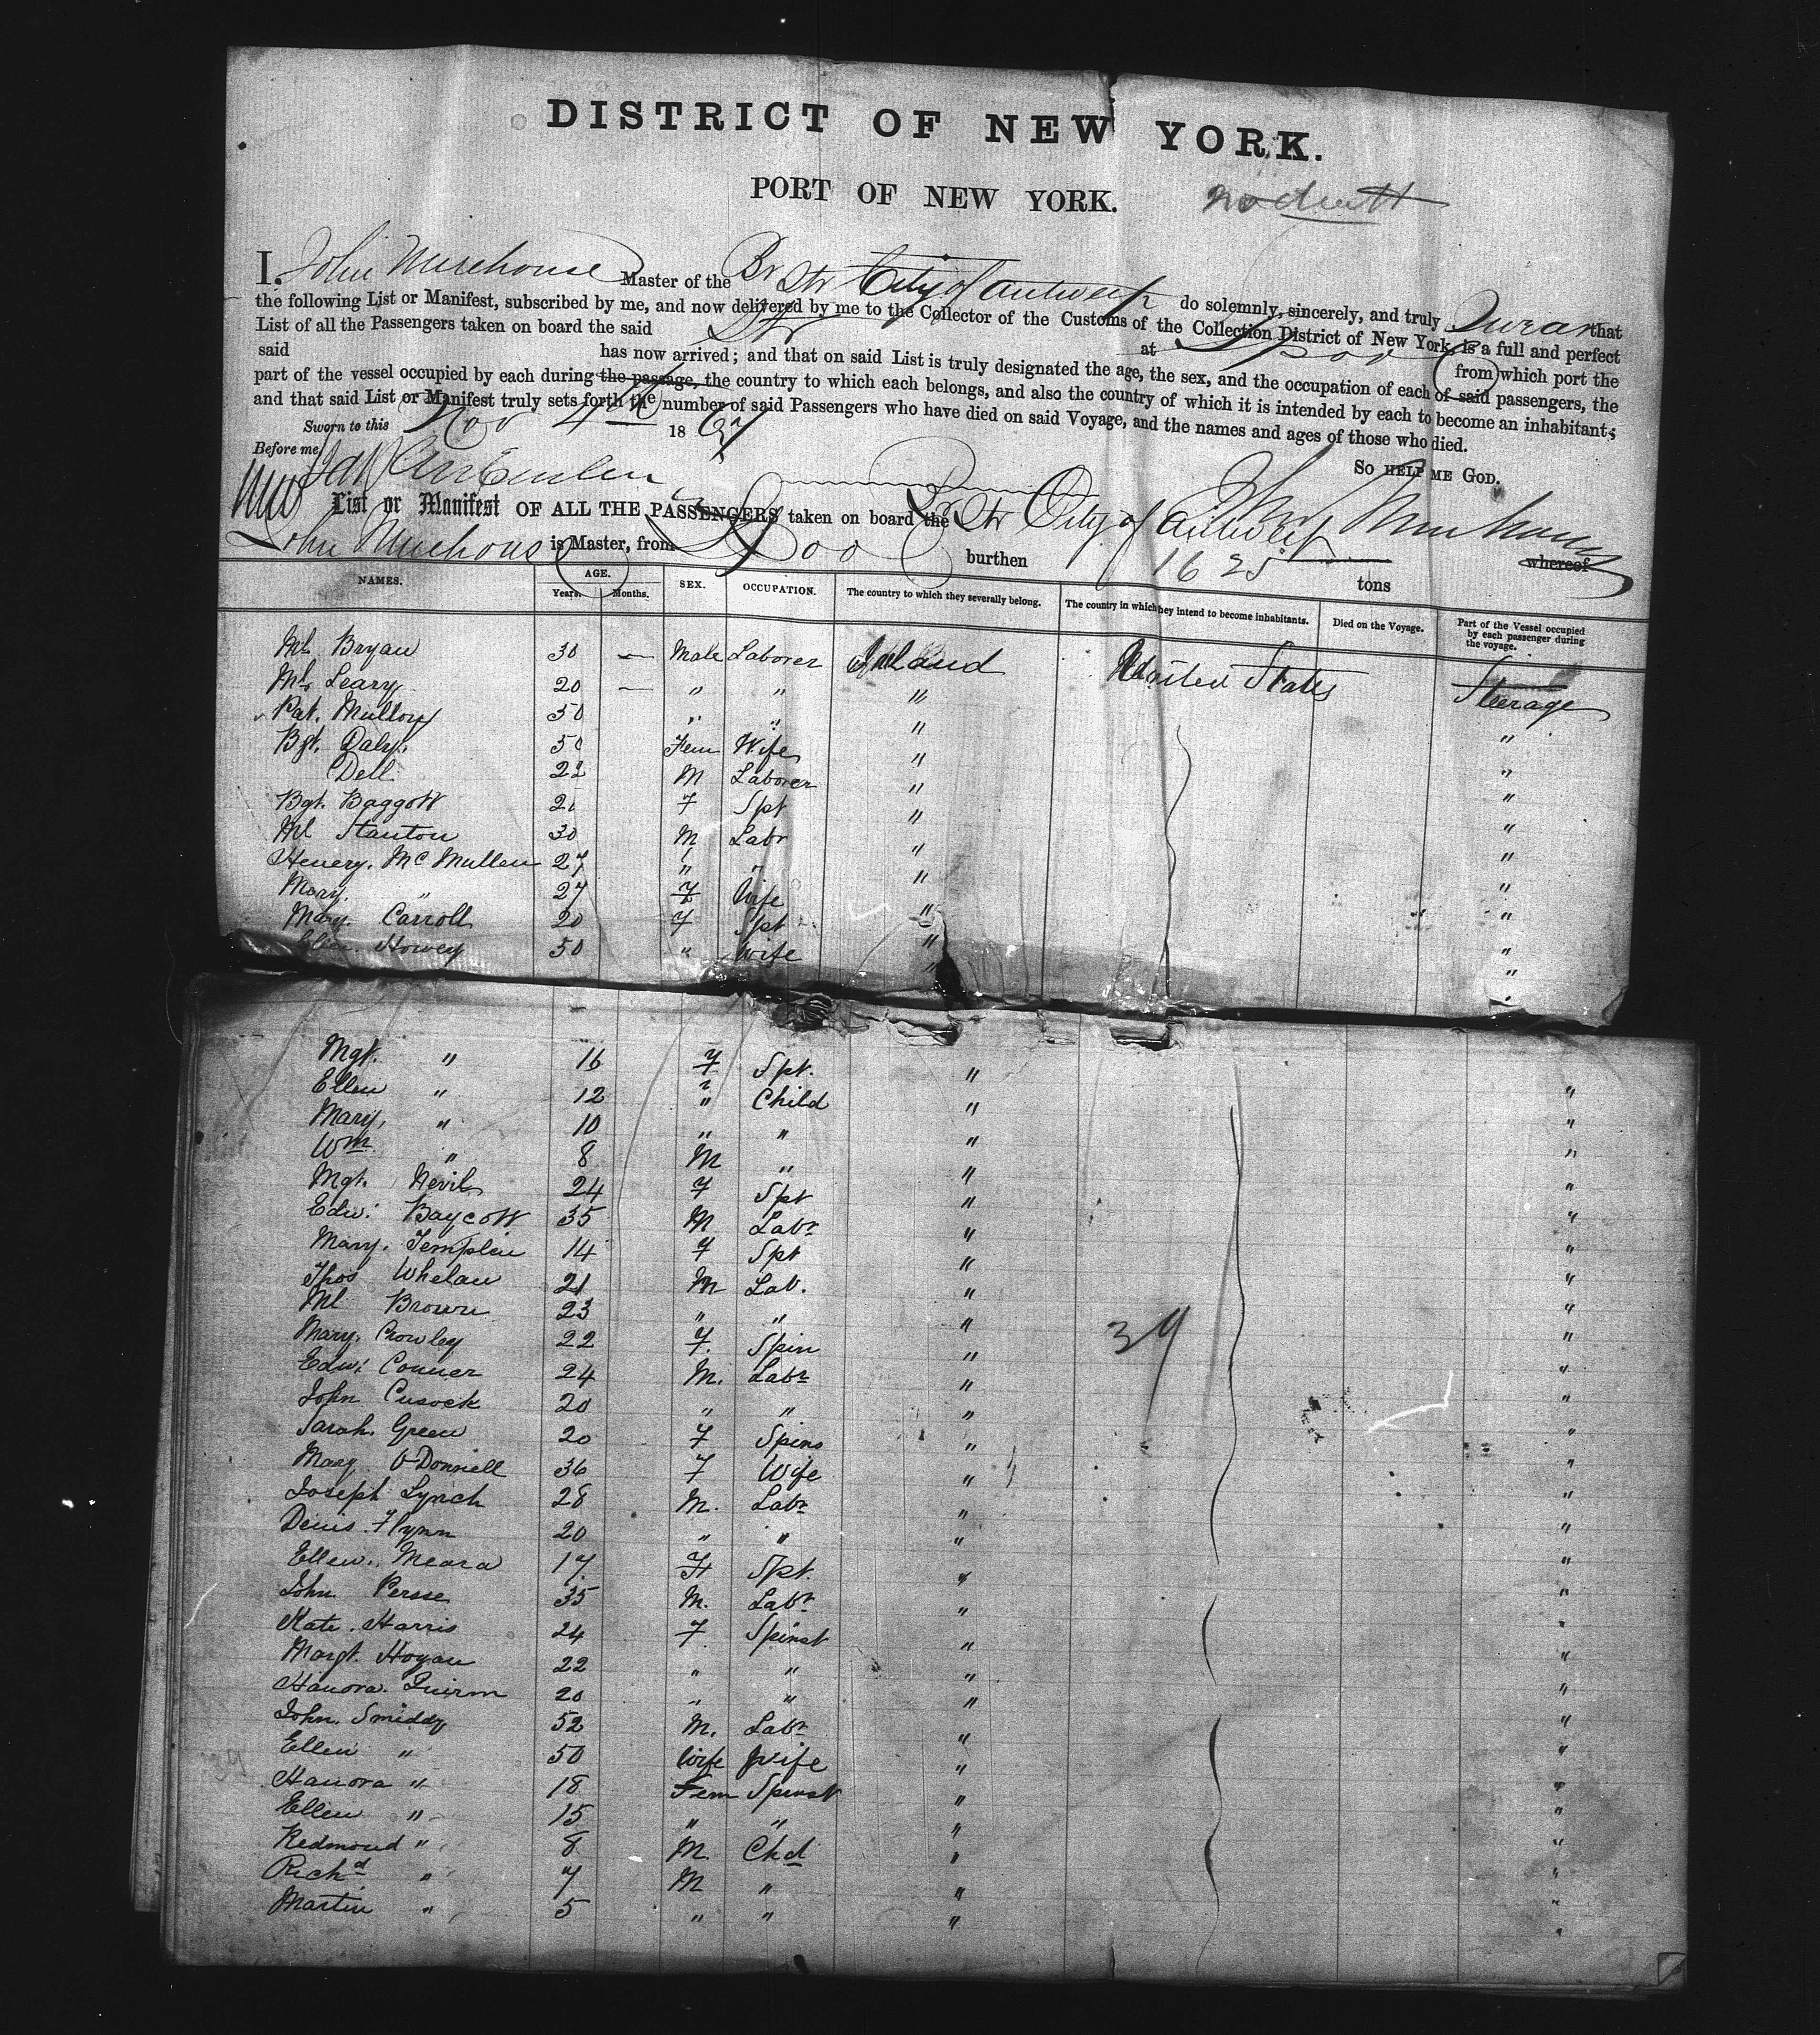 DISTRICT OF NEW YORK.
PORT OF NEW YORK.
I, John Mirehouse Master of the Br Str City of Antwerp do solemnly, sincerely, and truly Swear that
the following List or Manifest, subscribed by me, and now delivered by me to the Collector of the Customs of the Collection District of New York, is a full and perfect
List of all the Passengers taken on board the said Str at Lpool from which port the
said has now arrived; and that on said List is truly designated the age, the sex, and the occupation of each of said passengers, the
part of the vessel occupied by each during the passage, the country to which each belongs, and also the country of which it is intended by each to become an inhabitant;
and that said List or Manifest truly sets forth the number of said Passengers who have died on said Voyage, and the names and ages of those who died.
Sworn to this Nov 4th 1867
So HELP ME GOD.
Before me
List or Manifest OF ALL THE PASSENGERS taken on board the Br Str City of Antwerp whereof
John Mirehouse is Master, from Lpool burthen 1625 tons
NAMES. AGE. Years. Months. SEX. OCCUPATION. The country to which they severally belong. The country in which they intend to become inhabitants. Died on the Voyage. Part of the Vessel occupied by each passenger during the voyage.
Ml Bryan 30 — Male Laborer Ireland United States Steerage
Ml Leary 20 — " " " "
Pat. Mullony 50 " " " "
Bgt. Daly. 50 Fem Wife " "
Dell 22 M Laborer " "
Bgt. Baggott 21 F Spt " "
Ml Stanton 30 M Labr " "
Henery. McMullen 27 " " " "
Mary. " 27 F Wife " "
Mary. Carroll 20 F Spt " "
Howey 50 " Wife " "
Mgt. " 16 F Spt. " "
Ellen " 12 " Child " "
Mary, " 10 " " " "
Wm " 8 M " " "
Mgt. Nevil 24 F Spt " "
Edw: Baycott 35 M Labr " "
Mary. Templin 14 F Spt " "
Thos Whelan 21 M Lab. " "
Ml Brown 23 " " " "
Mary. Crowley 22 F. Spin " 39 "
Edw: Conner 24 M. Labr " "
John Cusock 20 " " " "
Sarah. Green 20 F Spins " "
Mary O'Donnell 36 F Wife " "
Joseph Lynch 28 M. Labr " "
Denis. Flynn 20 " " " "
Ellen. Meara 17 F Spt. " "
John Persse 35 M. Labr " "
Kate. Harris 24 F. Spinst " "
Margt. Hogan 22 " " " "
Hanora. Quirm 20 " " " "
John. Smiddy 52 M. Labr " "
Ellen " 50 Wife Wife " "
Hanora " 18 Fem Spinst " "
Ellen " 15 " " " "
Redmond " 8 M. Chd " "
Richd " 7 M " " "
Martin " 5 " " " "